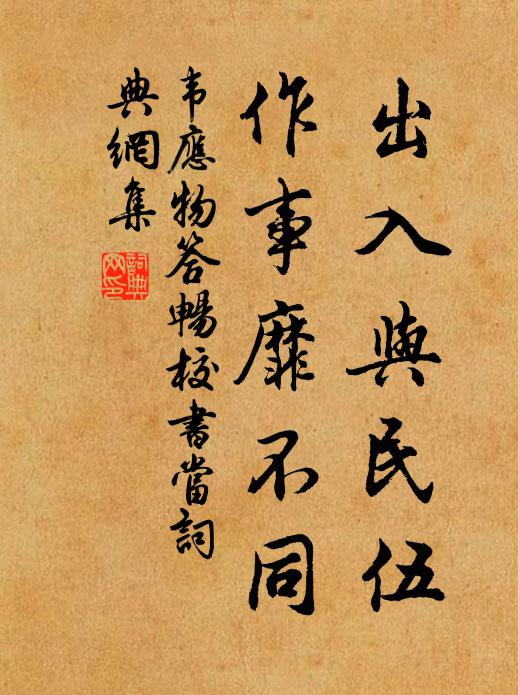 出入與民伍
作事靡不同
韦應物答暢校書當詞
典網集
詞典
网印